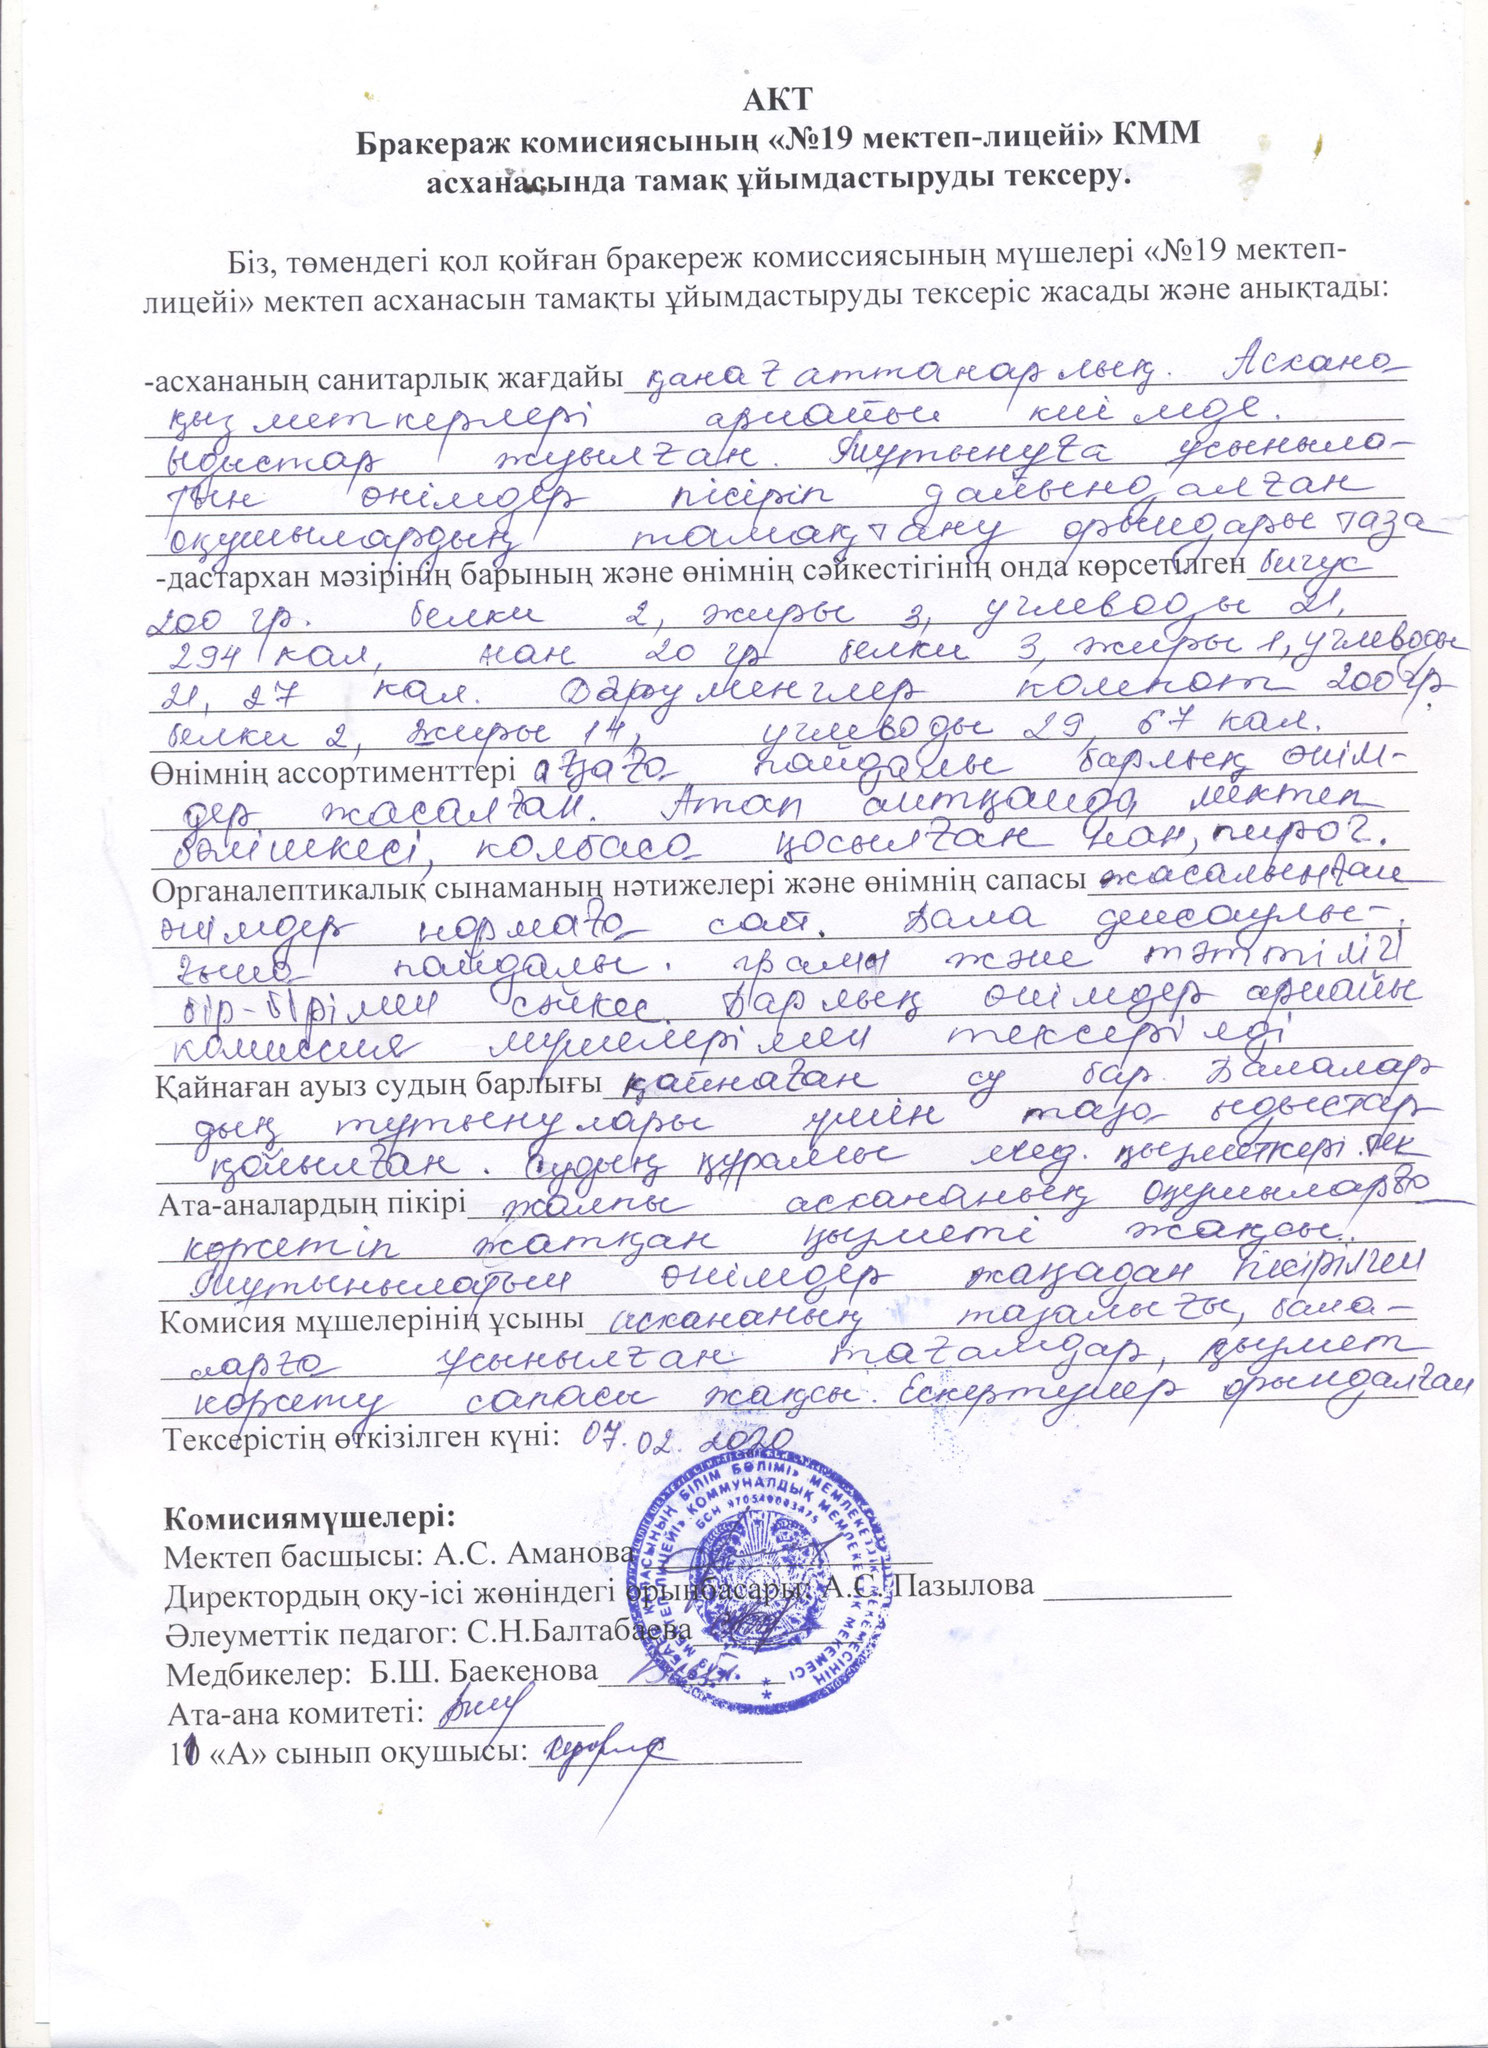 АКТ
Бракераж комисиясының «№19 мектеп-лицейі» КММ
асханасында тамақ ұйымдастыруды тексеру.
Біз, төмендегі қол қойған бракереж комиссиясының мүшелері «№19 мектеп-
лицейі» мектеп асханасын тамақты ұйымдастыруды тексеріс жасады және анықтады:
-асхананың санитарлық жағдайы қанағаттанарлық. Асхана
қызметкерлері арнайы киімде.
Ыдыстар жуылған. Тұтынуға ұсыныла-
тын өнімдер пісіріп дайындалған
оқушылардың тамақтану орындары таза
-дастархан мәзірінің барының және өнімнің сәйкестігінің онда көрсетілген бигус
200 гр. белки 2, жиры 3, углеводы 21,
294 кал, нан 20 гр белки 3, жиры 1, углеводы
21, 27 кал. Дәруменглер компот 200 гр
белки 2, жиры 14, углеводы 29, 67 кал.
Өнімнің ассортименттері ағзаға пайдалы барлық өнім-
дер жасалған. Атап айтқанда мектеп
бәлішкесі, колбаса қосылған нан, пирог.
Органалептикалық сынаманың нәтижелері және өнімнің сапасы жасалынған
өнімдер нормаға сай. Бала денсаулы-
ғына пайдалы. грамы және тәттілігі
бір-бірімен сәйкес. Барлық өнімдер арнайы
комиссия мүшелерімен тексерілді
Қайнаған ауыз судың барлығы қайнаған су бар. Балалар
дың тұтынулары үшін таза ыдыстар
қойылған. Судың құрамы мед. қызметкері тек
Ата-аналардың пікірі жалпы асхананың оқушыларға
көрсетіп жатқан қызметі жақсы.
Тұтынылатын өнімдер жаңадан пісірілген
Комисия мұшелерінің ұсыны асхананың тазалығы, бала-
ларға ұсынылған тағамдар, қызмет
көрсету сапасы жақсы. Ескертулер орындалған
Тексерістің өткізілген күні: 07.02.2020
Комисиямүшелері:
Мектеп басшысы: А.С. Аманова
Директордың оқу-ісі жөніндегі орынбасары: А.С. Пазылова
Әлеуметтік педагог: С.Н.Балтабаева
Медбикелер: Б.Ш. Баекенова
Ата-ана комитеті:
11 «А» сынып оқушысы: